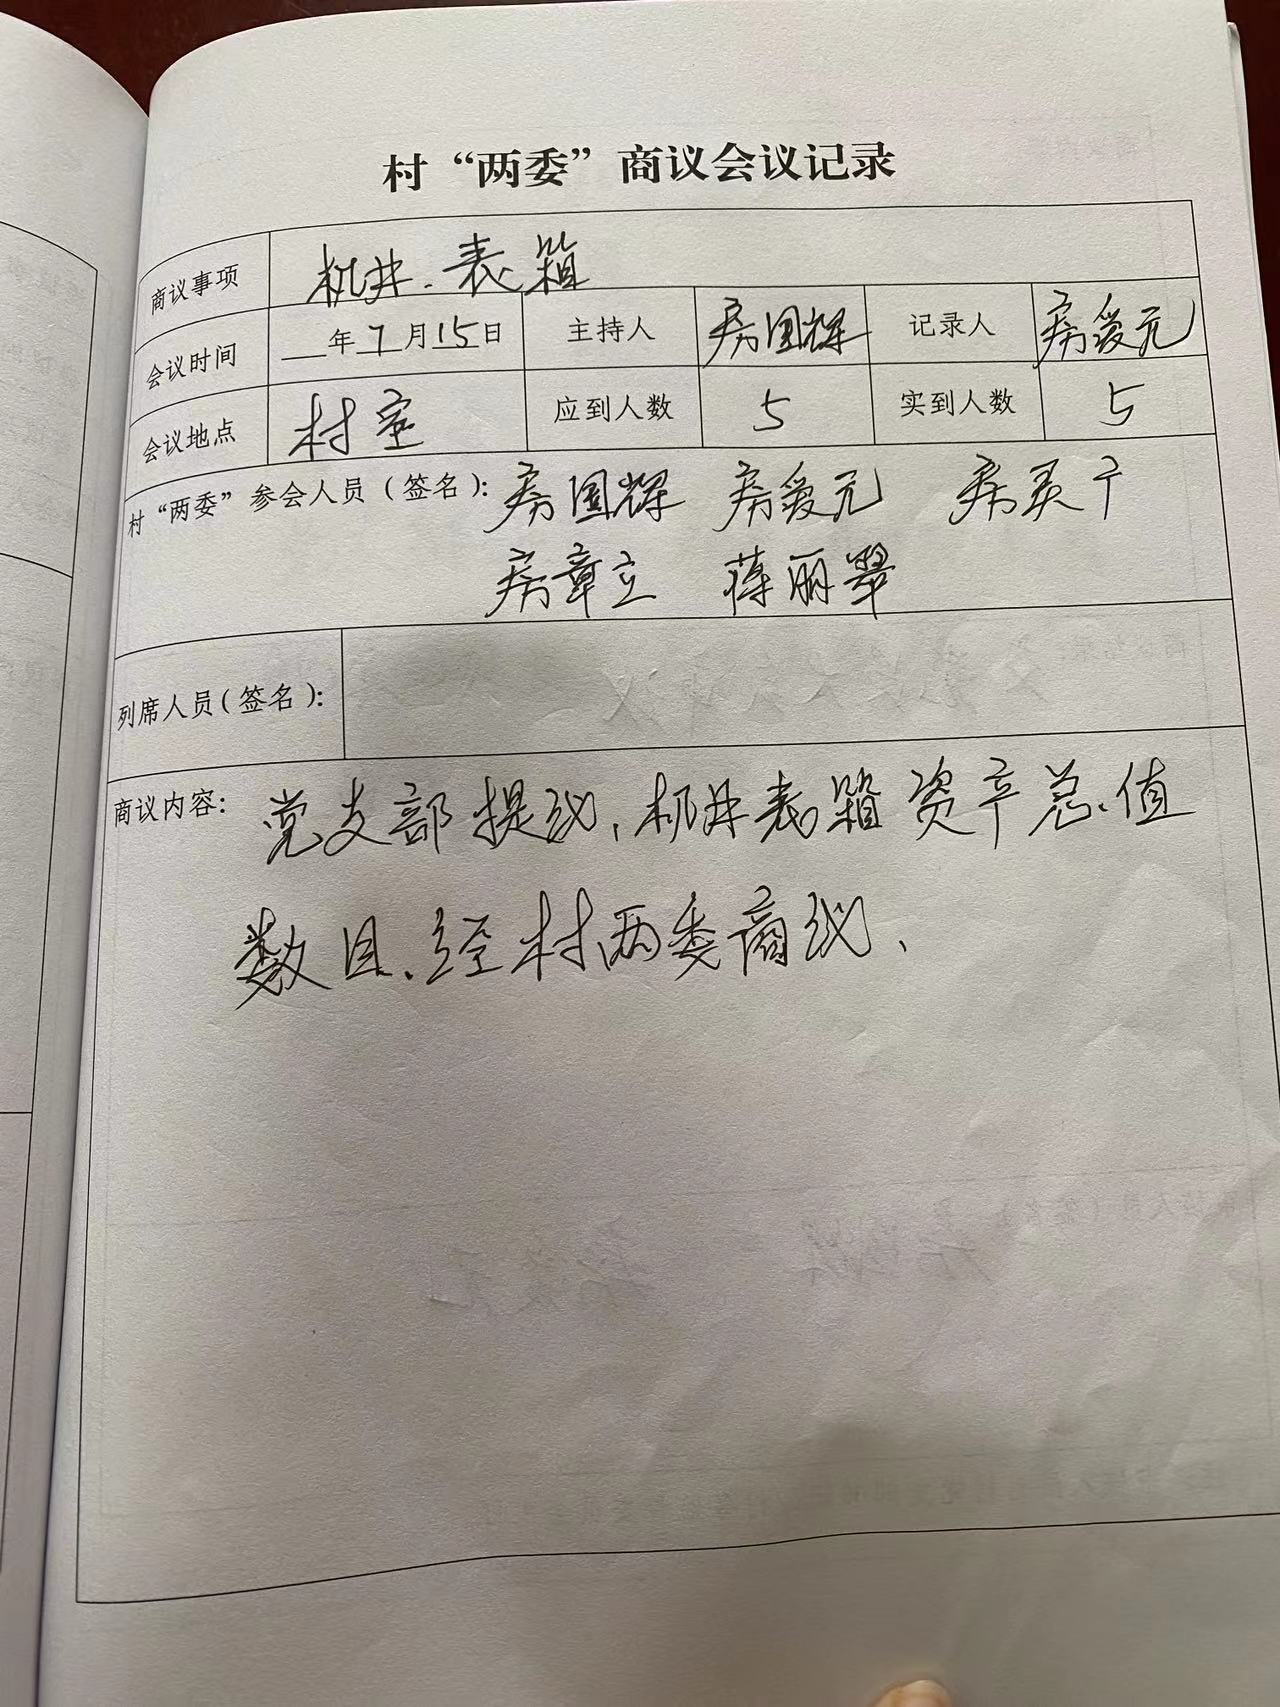 村“两委”商议会议记录
商议事项 机井.表箱
会议时间 __年7月15日 主持人 房国辉 记录人 房爱元
会议地点 村室 应到人数 5 实到人数 5
村“两委”参会人员(签名): 房国辉 房爱元 房灵
房章立 蒋丽翠
列席人员(签名):
商议内容: 党支部提议,机井表箱资产总值
数目.经村两委商议、